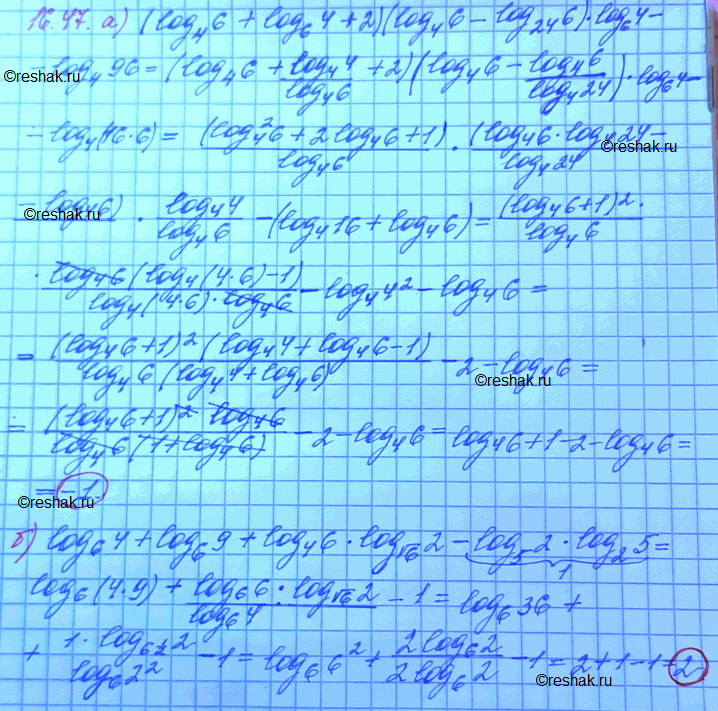 16.47. а) (log₄6 + log₆4 + 2)(log₄6 − log₂₄6)·log₆4 −
− log₄96 = (log₄6 + log₄4/log₄6 + 2)(log₄6 − log₄6/log₄24)·log₆4 −
− log₄(16·6) = (log₄²6 + 2log₄6 + 1)/log₄6 · (log₄6·log₄24 −
− log₄6)/log₄24 · log₄4/log₄6 − (log₄16 + log₄6) = (log₄6+1)²·/log₄6
· log₄6(log₄(4·6)−1)/log₄(4·6)·log₄6 − log₄4² − log₄6 =
= (log₄6+1)²(log₄4 + log₄6 − 1)/log₄6(log₄4 + log₄6) − 2 − log₄6 =
= (log₄6+1)² log₄6/log₄6(1+log₄6) − 2 − log₄6 = log₄6 + 1 − 2 − log₄6 =
= −1.
б) log₆4 + log₆9 + log₄6 · log√6 2 − log₅2 · log₂5 =
1
log₆(4·9) + log₆6 · log√6 2/log₆4 − 1 = log₆36 +
+ 1·log₆^½ 2/log₆2² − 1 = log₆6² + 2log₆2/2log₆2 − 1 = 2+1−1=2.
©reshak.ru
©reshak.ru
©reshak.ru
©reshak.ru
©reshak.ru
©reshak.ru
©reshak.ru
©reshak.ru